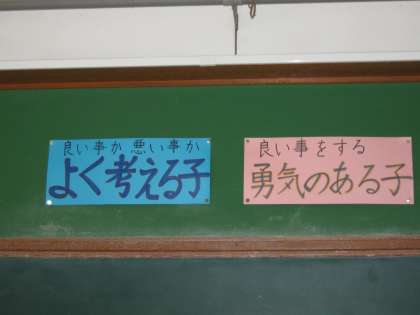 良い事か悪い事か
よく考える子
良い事をする
勇気のある子